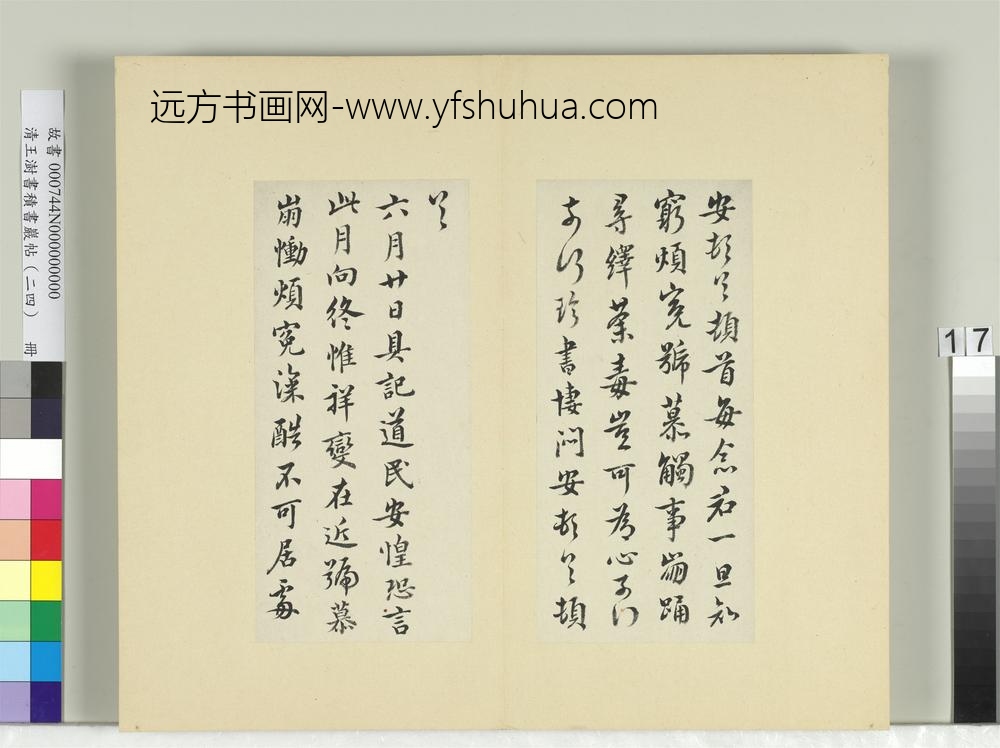 远方书画网-www.yfshuhua.com
故書 000744N000000000
清王澍書積書巖帖（二四） 冊
17
安頓首頓首每念君一旦知
窮煩冤號慕觸事崩踊
尋繹荼毒豈可為心奈何
臨書悽悶安頓首頓
首
六月廿日具記道民安惶恐言
此月向終惟祥變在近號慕
崩慟煩冤深酷不可居處